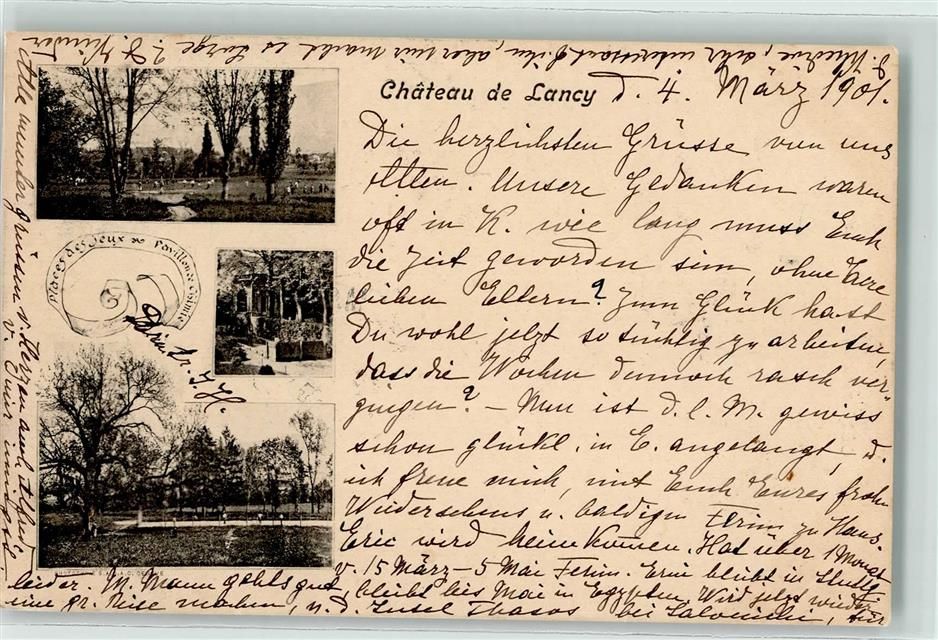 Château de Lancy
d. 4. März 1901.
Die herzlichsten Grüsse von uns
Allen. Unsere Gedanken waren
oft in K. wie lang muss Euch
die Zeit geworden sein, ohne Eure
lieben Eltern? Zum Glück hast
Du wohl jetzt so tüchtig zu arbeiten,
dass die Wochen dennoch rasch ver-
gingen? - Nun ist d. l. M. gewiss
schon glückl. in E. angelangt, u.
ich freue mich, mit Euch Eures frohen
Wiedersehens u. baldigen Ferien zu Haus.
Eric wird heim kommen. Hat über 1 Monat
v. 15 März - 5 Mai Ferien. Erni bleibt in Stuttg.
leider. M. Mann gehts gut, bleibt bis Mai in Egypten. Wird jetzt wieder
eine gr. Reise machen, n. d. Insel Thasos bei Saloniki, für
d. Khedive, sehr interessant f. ihn, aber mir macht es Sorge
Places des Jeux
Pavillon
Alle Kinder grüssen v. Herzen
v. Eurer